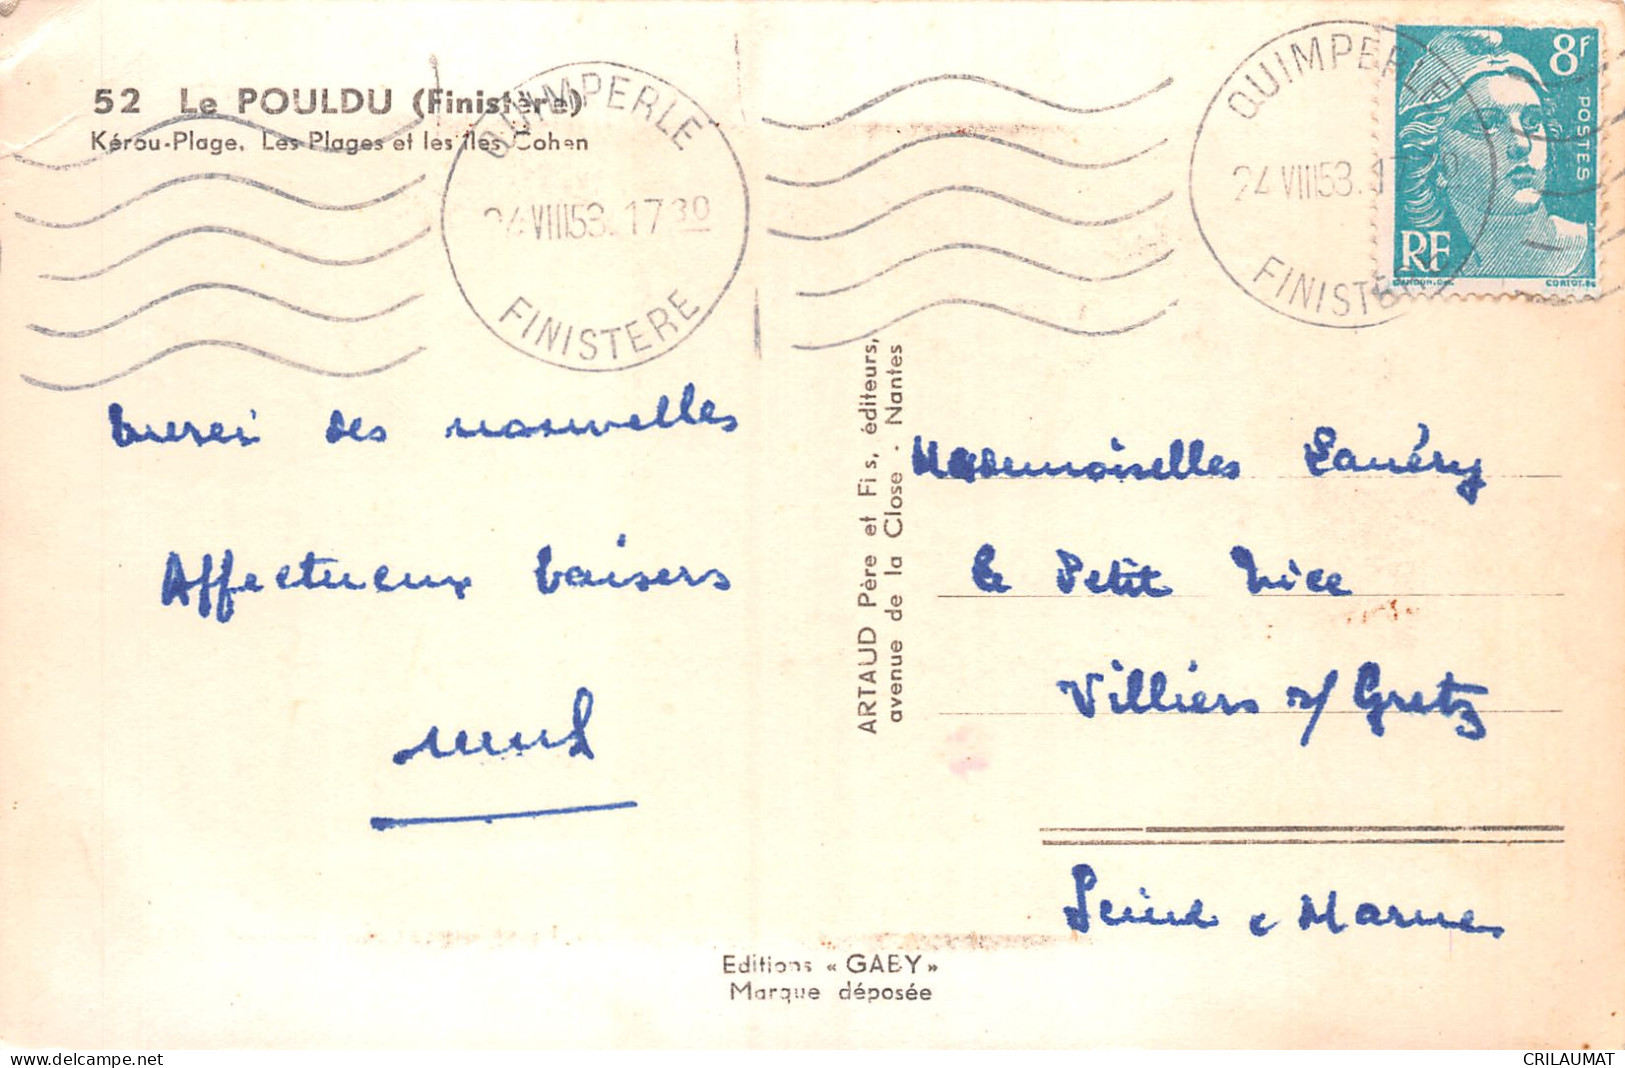 52 Le POULDU (Finistère)
Kérou-Plage. Les Plages et les Iles Cohen
QUIMPERLE
24 VIII 53. 17 30
FINISTERE
QUIMPERLE
24 VIII 53. 17
FINISTERE
8F
POSTES
RF
GANDON. DEL.
CORTOT. SC
merci des nouvelles
Affectueux baisers
ARTAUD Père et Fils, éditeurs,
avenue de la Close - Nantes
Mademoiselles Lanéry
Le Petit Nice
Villiers s/ Gretz
Seine e Marne
Editions « GABY »
Marque déposée
www.delcampe.net
CRILAUMAT